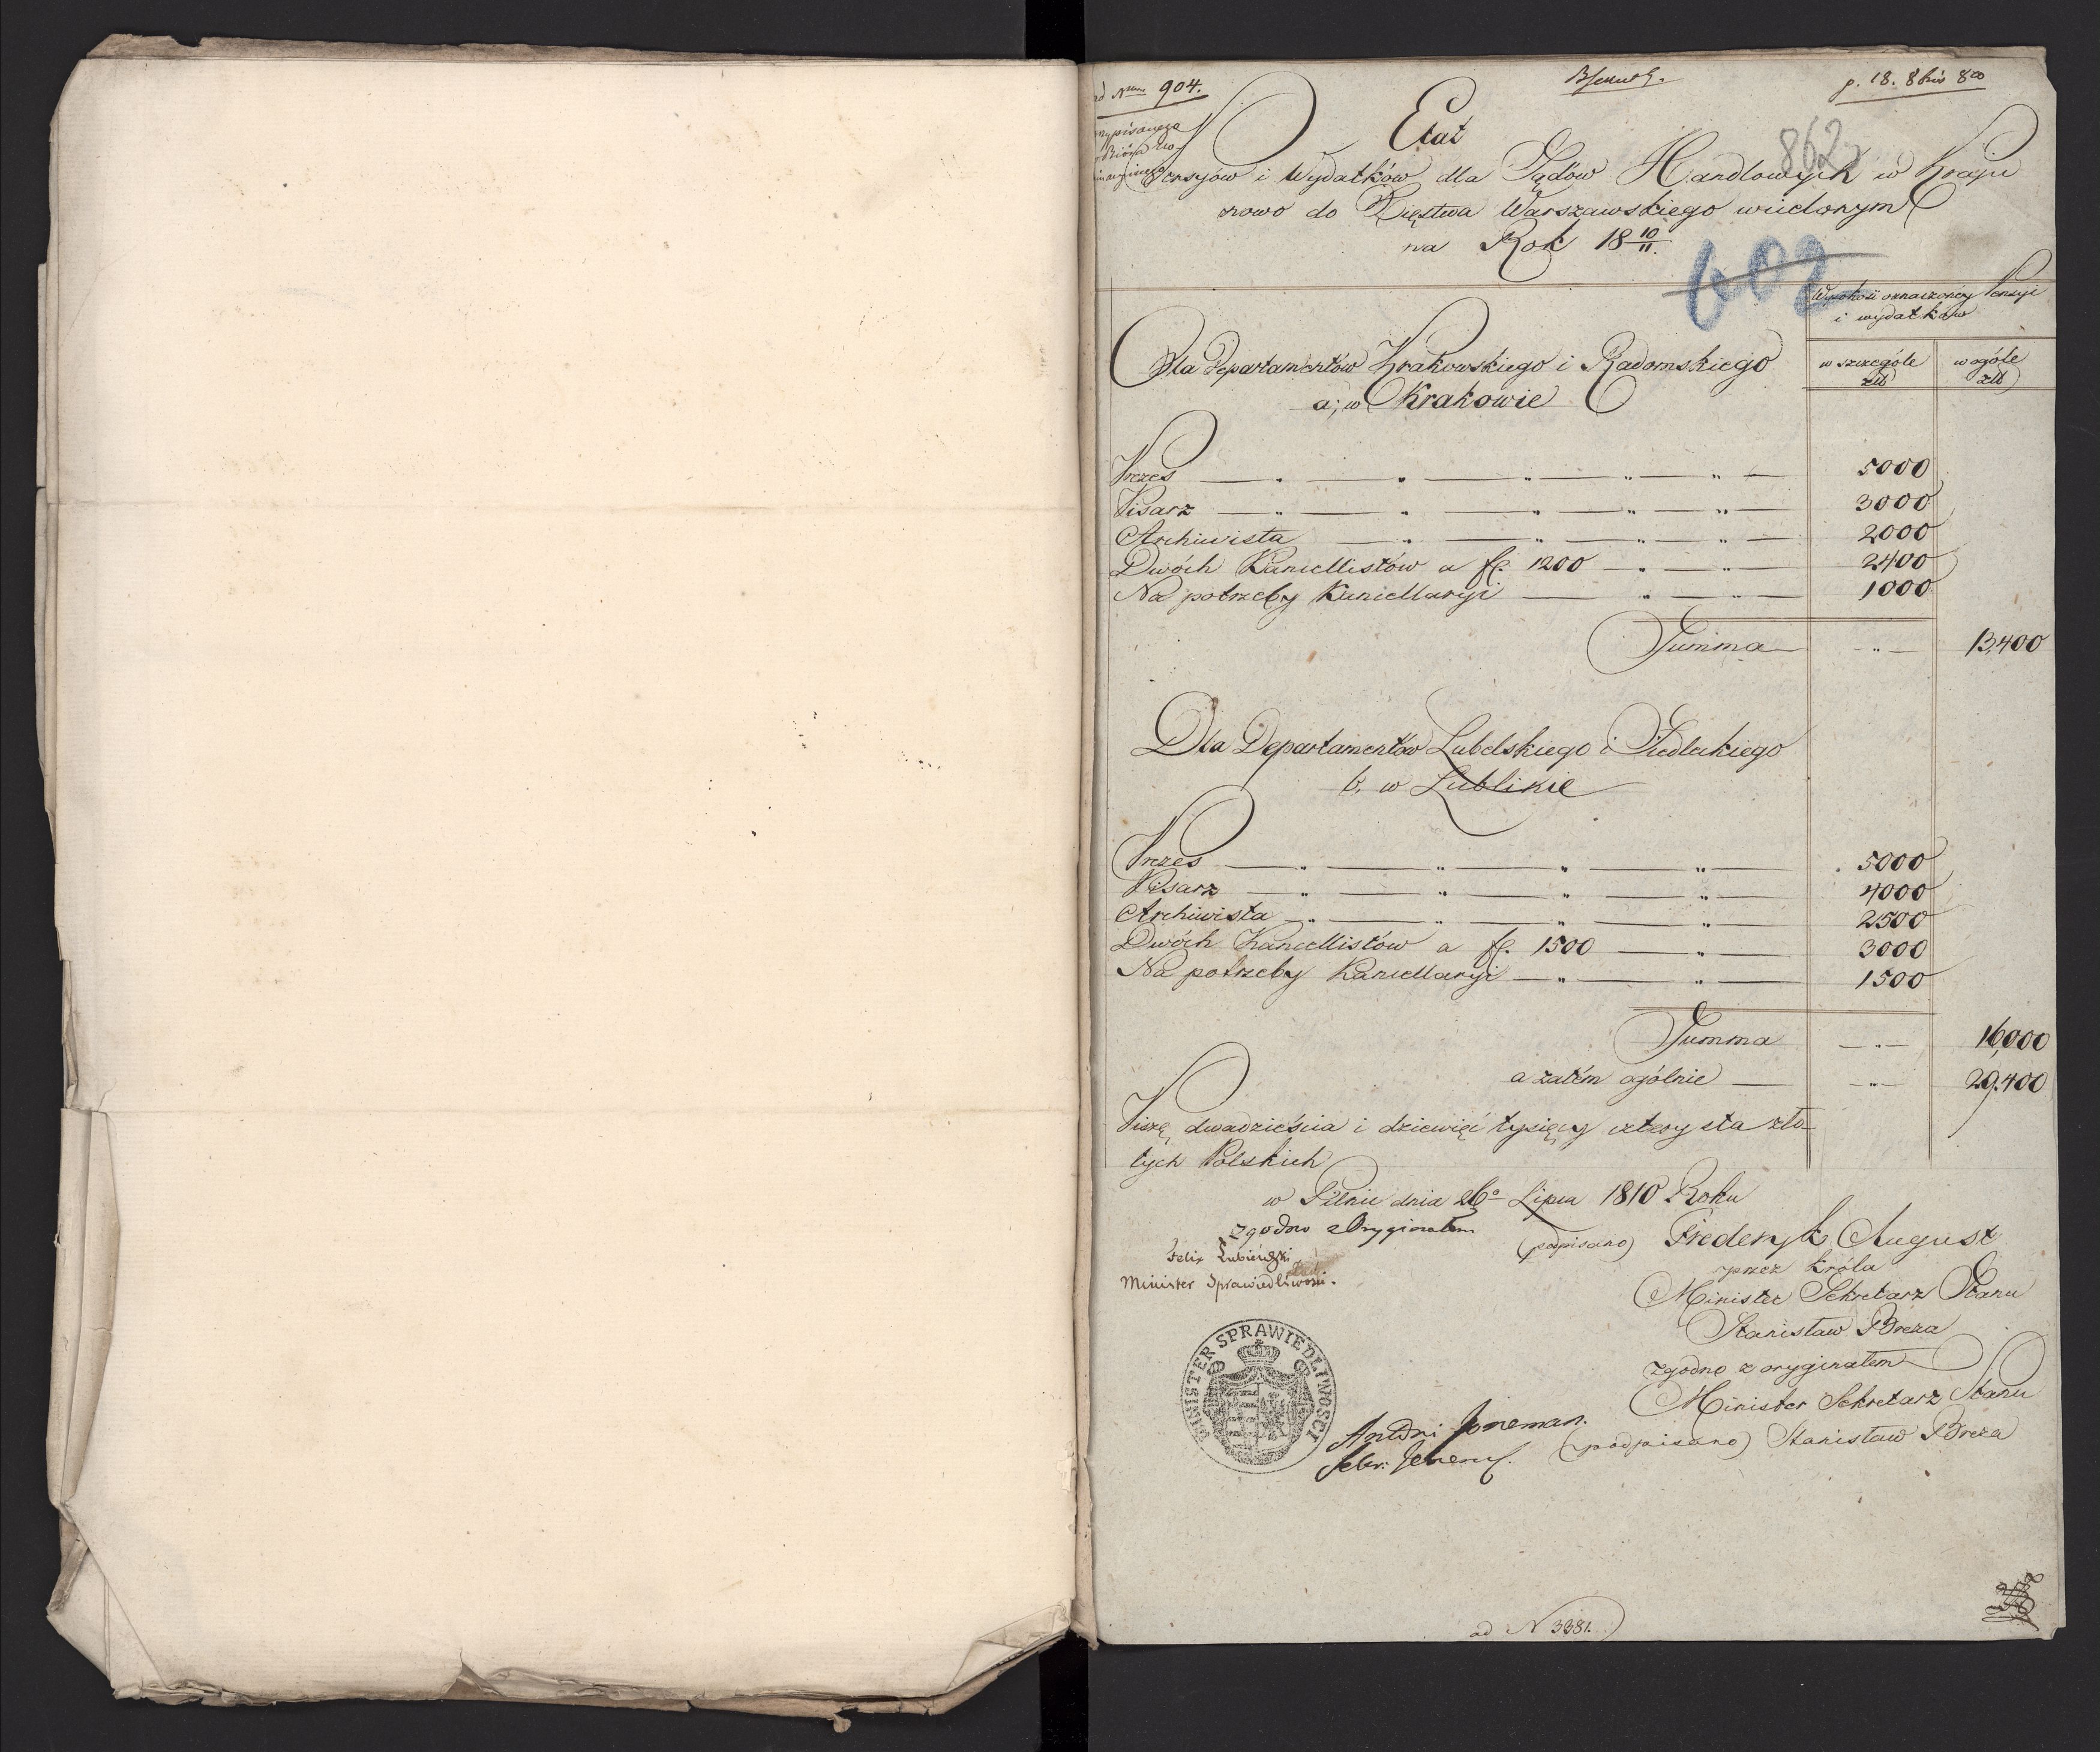 ad Num 904.
p. 18. 8bris 810
862
Etat
Pensyów i Wydatków dla Sądów Handlowych w Kraju
nowo do Xięstwa Warszawskiego wcielonym
na Rok 18 10/11.
602
Wysokość oznaczonéy Pensyi
i wydatków
w szczególe
złł
w ogóle
złł
Dla Departamentów Krakowskiego i Radomskiego
a; w Krakowie
Prezes — „ — „ — „ — „ — „ — 5000
Pisarz — „ — „ — „ — „ — „ — 3000
Archiwista — „ — „ — „ — „ — 2000
Dwóch Kancellistów a fl. 1200 — „ — „ — 2400
Na potrzeby Kancellaryi — „ — „ — 1000
Summa — „ — 13,400
Dla Departamentów Lubelskiego i Siedleckiego
b, w Lublinie
Prezes — „ — „ — „ — „ — 5000
Pisarz — „ — „ — „ — „ — 4000
Archiwista — „ — „ — „ — „ — 2500
Dwóch Kancellistów a fl. 1500 — „ — 3000
Na potrzeby Kancellaryi — „ — „ — 1500
Summa — „ — 16,000
a zatém ogólnie — „ — 29,400
Piszę dwadzieścia i dziewięć tysięcy cztery sta zło-
tych Polskich
w Pilnic dnia 26o Lipca 1810 Roku
Zgodno z Oryginałem
(podpisano) Frederyk August
Felix Łubieński
przez Króla
Minister Sprawiedliwości.
Minister Sekretarz Stanu
Stanisław Breza
zgodno z oryginałem
Minister Sekretarz Stanu
(podpisano) Stanisław Breza
MINISTER SPRAWIEDLIWOSCI
Sekr:
ad N 3381.